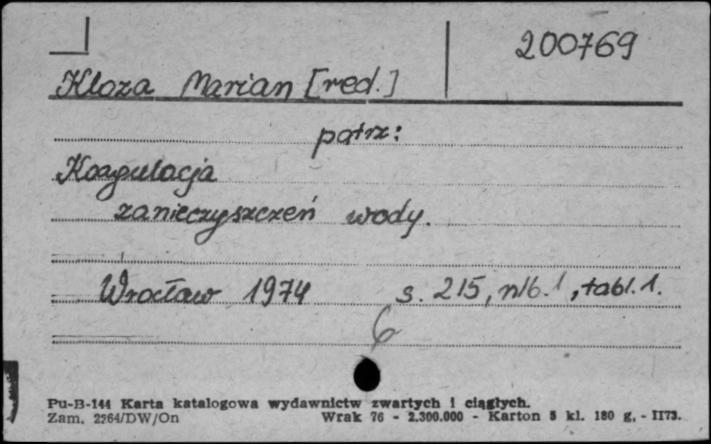 200769
Kloza Marian [red.]
patrz:
Koagulacja
zanieczyszczeń wody.
Wrocław 1974 s. 215, nlb. 1, tabl. 1.
6
Pu-B-144 Karta katalogowa wydawnictw zwartych i ciągłych.
Zam. 2264/DW/On Wrak 76 - 2.300.000 - Karton 5 kl. 180 g. - II73.